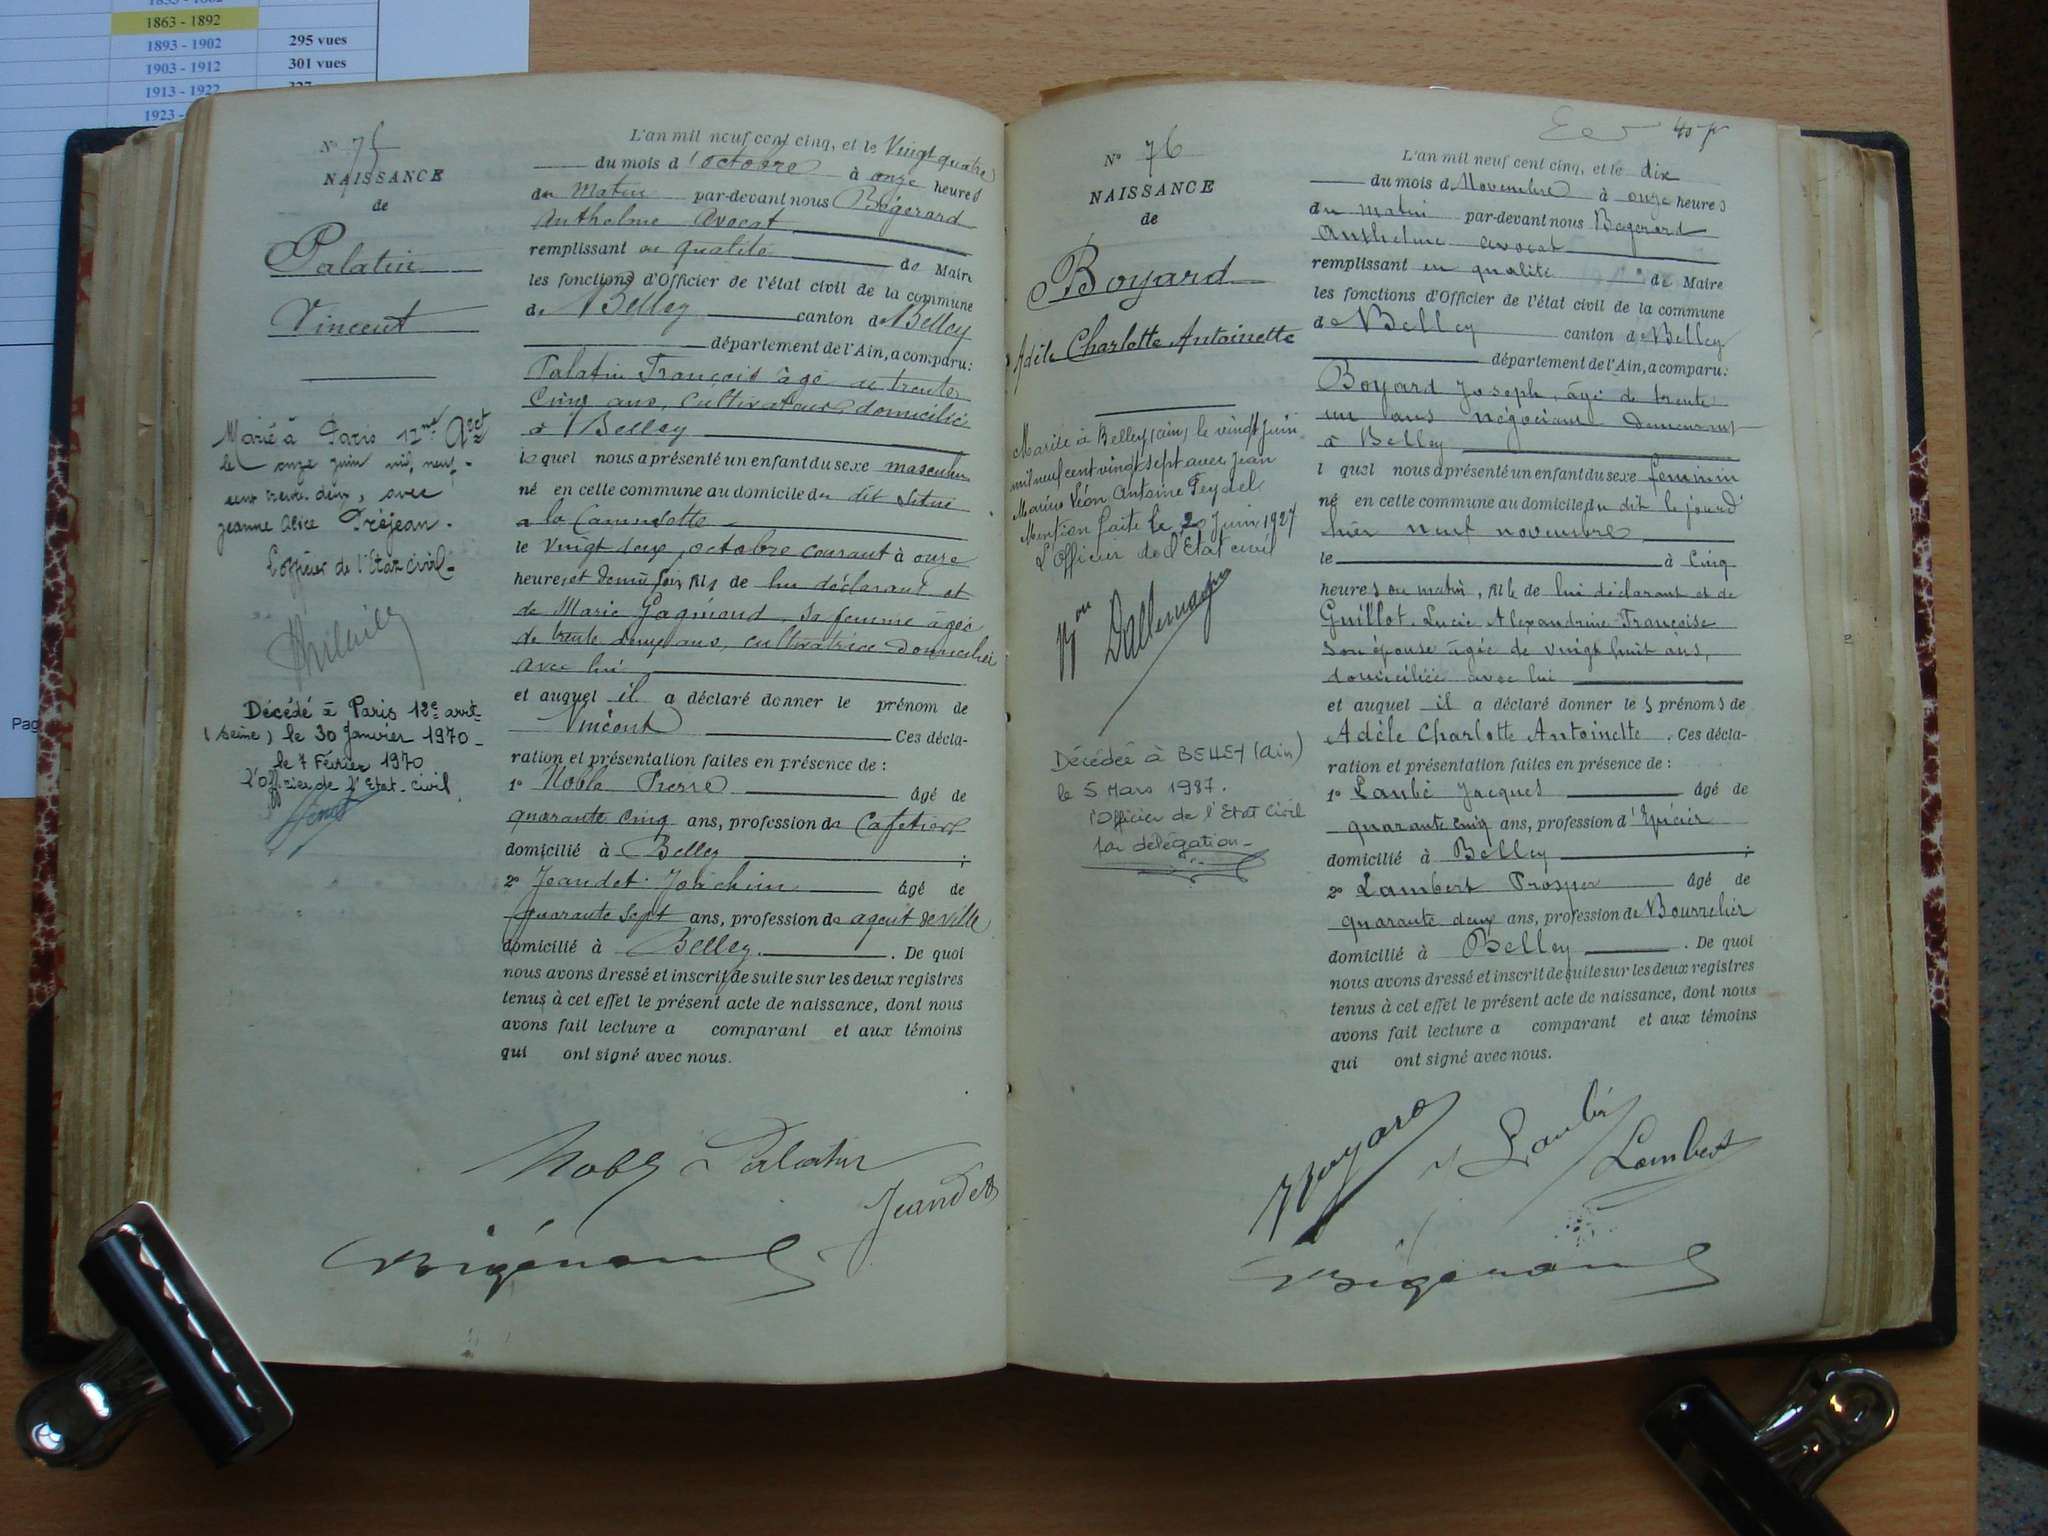 1863 - 1892
1893 - 1902 295 vues
1903 - 1912 301 vues
1913 - 1922
1923 -
Pag
N° 75
NAISSANCE
de
Palatin
Vincent
Marié à Paris 12me Arrt
le onze juin mil neuf
cent trente deux, avec
Jeanne Alice Préjean.
L'officier de l'Etat civil
Décédé à Paris 12e arrt
(Seine) le 30 Janvier 1970
le 7 Février 1970
l'Officier de l'Etat-civil
L'an mil neuf cent cinq, et le Vingt quatre
du mois d'octobre à onze heures
du matin par-devant nous Bigérard
Anthelme avocat
remplissant en qualité de Maire
les fonctions d'Officier de l'état civil de la commune
de Belley canton de Belley
département de l'Ain, a comparu:
Palatin François âgé de trente
cinq ans, cultivateur domicilié
à Belley
lequel nous a présenté un enfant du sexe masculin
né en cette commune au domicile du dit situé
a la
le vingt deux octobre courant à onze
heures et demi soir, fils de lui déclarant et
de Marie Gagnioud, sa femme âgée
de trente deux ans, cultivatrice domiciliée
avec lui
et auquel il a déclaré donner le prénom de
Vincent Ces décla-
ration et présentation faites en présence de:
1° Noble Pierre âgé de
quarante cinq ans, profession de Cafetier
domicilié à Belley ;
2° Jeandet Joachim âgé de
quarante sept ans, profession de agent de ville
domicilié à Belley. De quoi
nous avons dressé et inscrit de suite sur les deux registres
tenus à cet effet le présent acte de naissance, dont nous
avons fait lecture a comparant et aux témoins
qui ont signé avec nous.
Noble Palatin
Jeandet
Bigérard
40
N° 76
NAISSANCE
de
Boyard
Adèle Charlotte Antoinette
Mariée à Belley (Ain) le vingt juin
mil neuf cent vingt sept avec Jean
Marius Léon Antoine Peydel
Mention faite le 20 Juin 1927
L'Officier de l'Etat civil
Bon Dallemagne
Décédée à BELLEY (Ain)
le 5 Mars 1987.
l'Officier de l'Etat Civil
par délégation
L'an mil neuf cent cinq, et le dix
du mois d Novembre à onze heures
du matin par-devant nous Bigerard
Anthelme avocat
remplissant en qualité de Maire
les fonctions d'Officier de l'état civil de la commune
de Belley canton de Belley
département de l'Ain, a comparu:
Boyard Joseph, âgé de trente
un ans négociant demeurant
à Belley
l quel nous a présenté un enfant du sexe feminin
né en cette commune au domicile du dit le jourd'
hier neuf novembre
le à Cinq
heures du matin, fille de lui déclarant et de
Guillot Lucie Alexandrine Françoise
son épouse âgée de vingt huit ans,
domiciliée avec lui
et auquel il a déclaré donner les prénoms de
Adèle Charlotte Antoinette. Ces décla-
ration et présentation faites en présence de:
1° Laubé Jacques âgé de
quarante cinq ans, profession d'Epicier
domicilié à Belley ;
2° Lambert Prosper âgé de
quarante deux ans, profession de Bourrelier
domicilié à Belley. De quoi
nous avons dressé et inscrit de suite sur les deux registres
tenus à cet effet le présent acte de naissance, dont nous
avons fait lecture a comparant et aux témoins
qui ont signé avec nous.
Boyard J Laubé Lambert
Bigérard